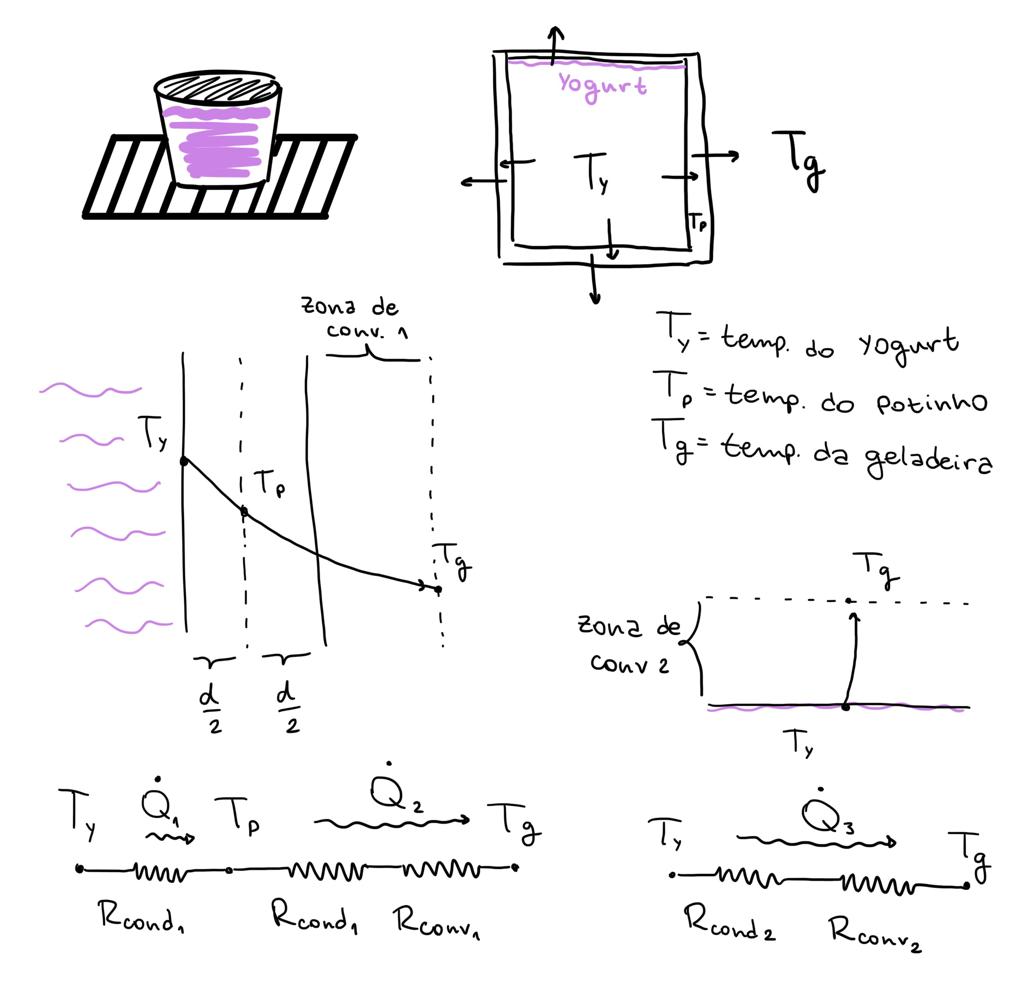 Yogurt
Ty
Tg
Tp
zona de
conv. 1
Ty = temp. do yogurt
Tp = temp. do potinho
Tg = temp. da geladeira
Ty
Tp
Tg
d/2
d/2
Tg
zona de
conv 2
Ty
Ty Q̇1 Tp Q̇2 Tg
Rcond1 Rcond1 Rconv1
Ty Q̇3 Tg
Rcond2 Rconv2